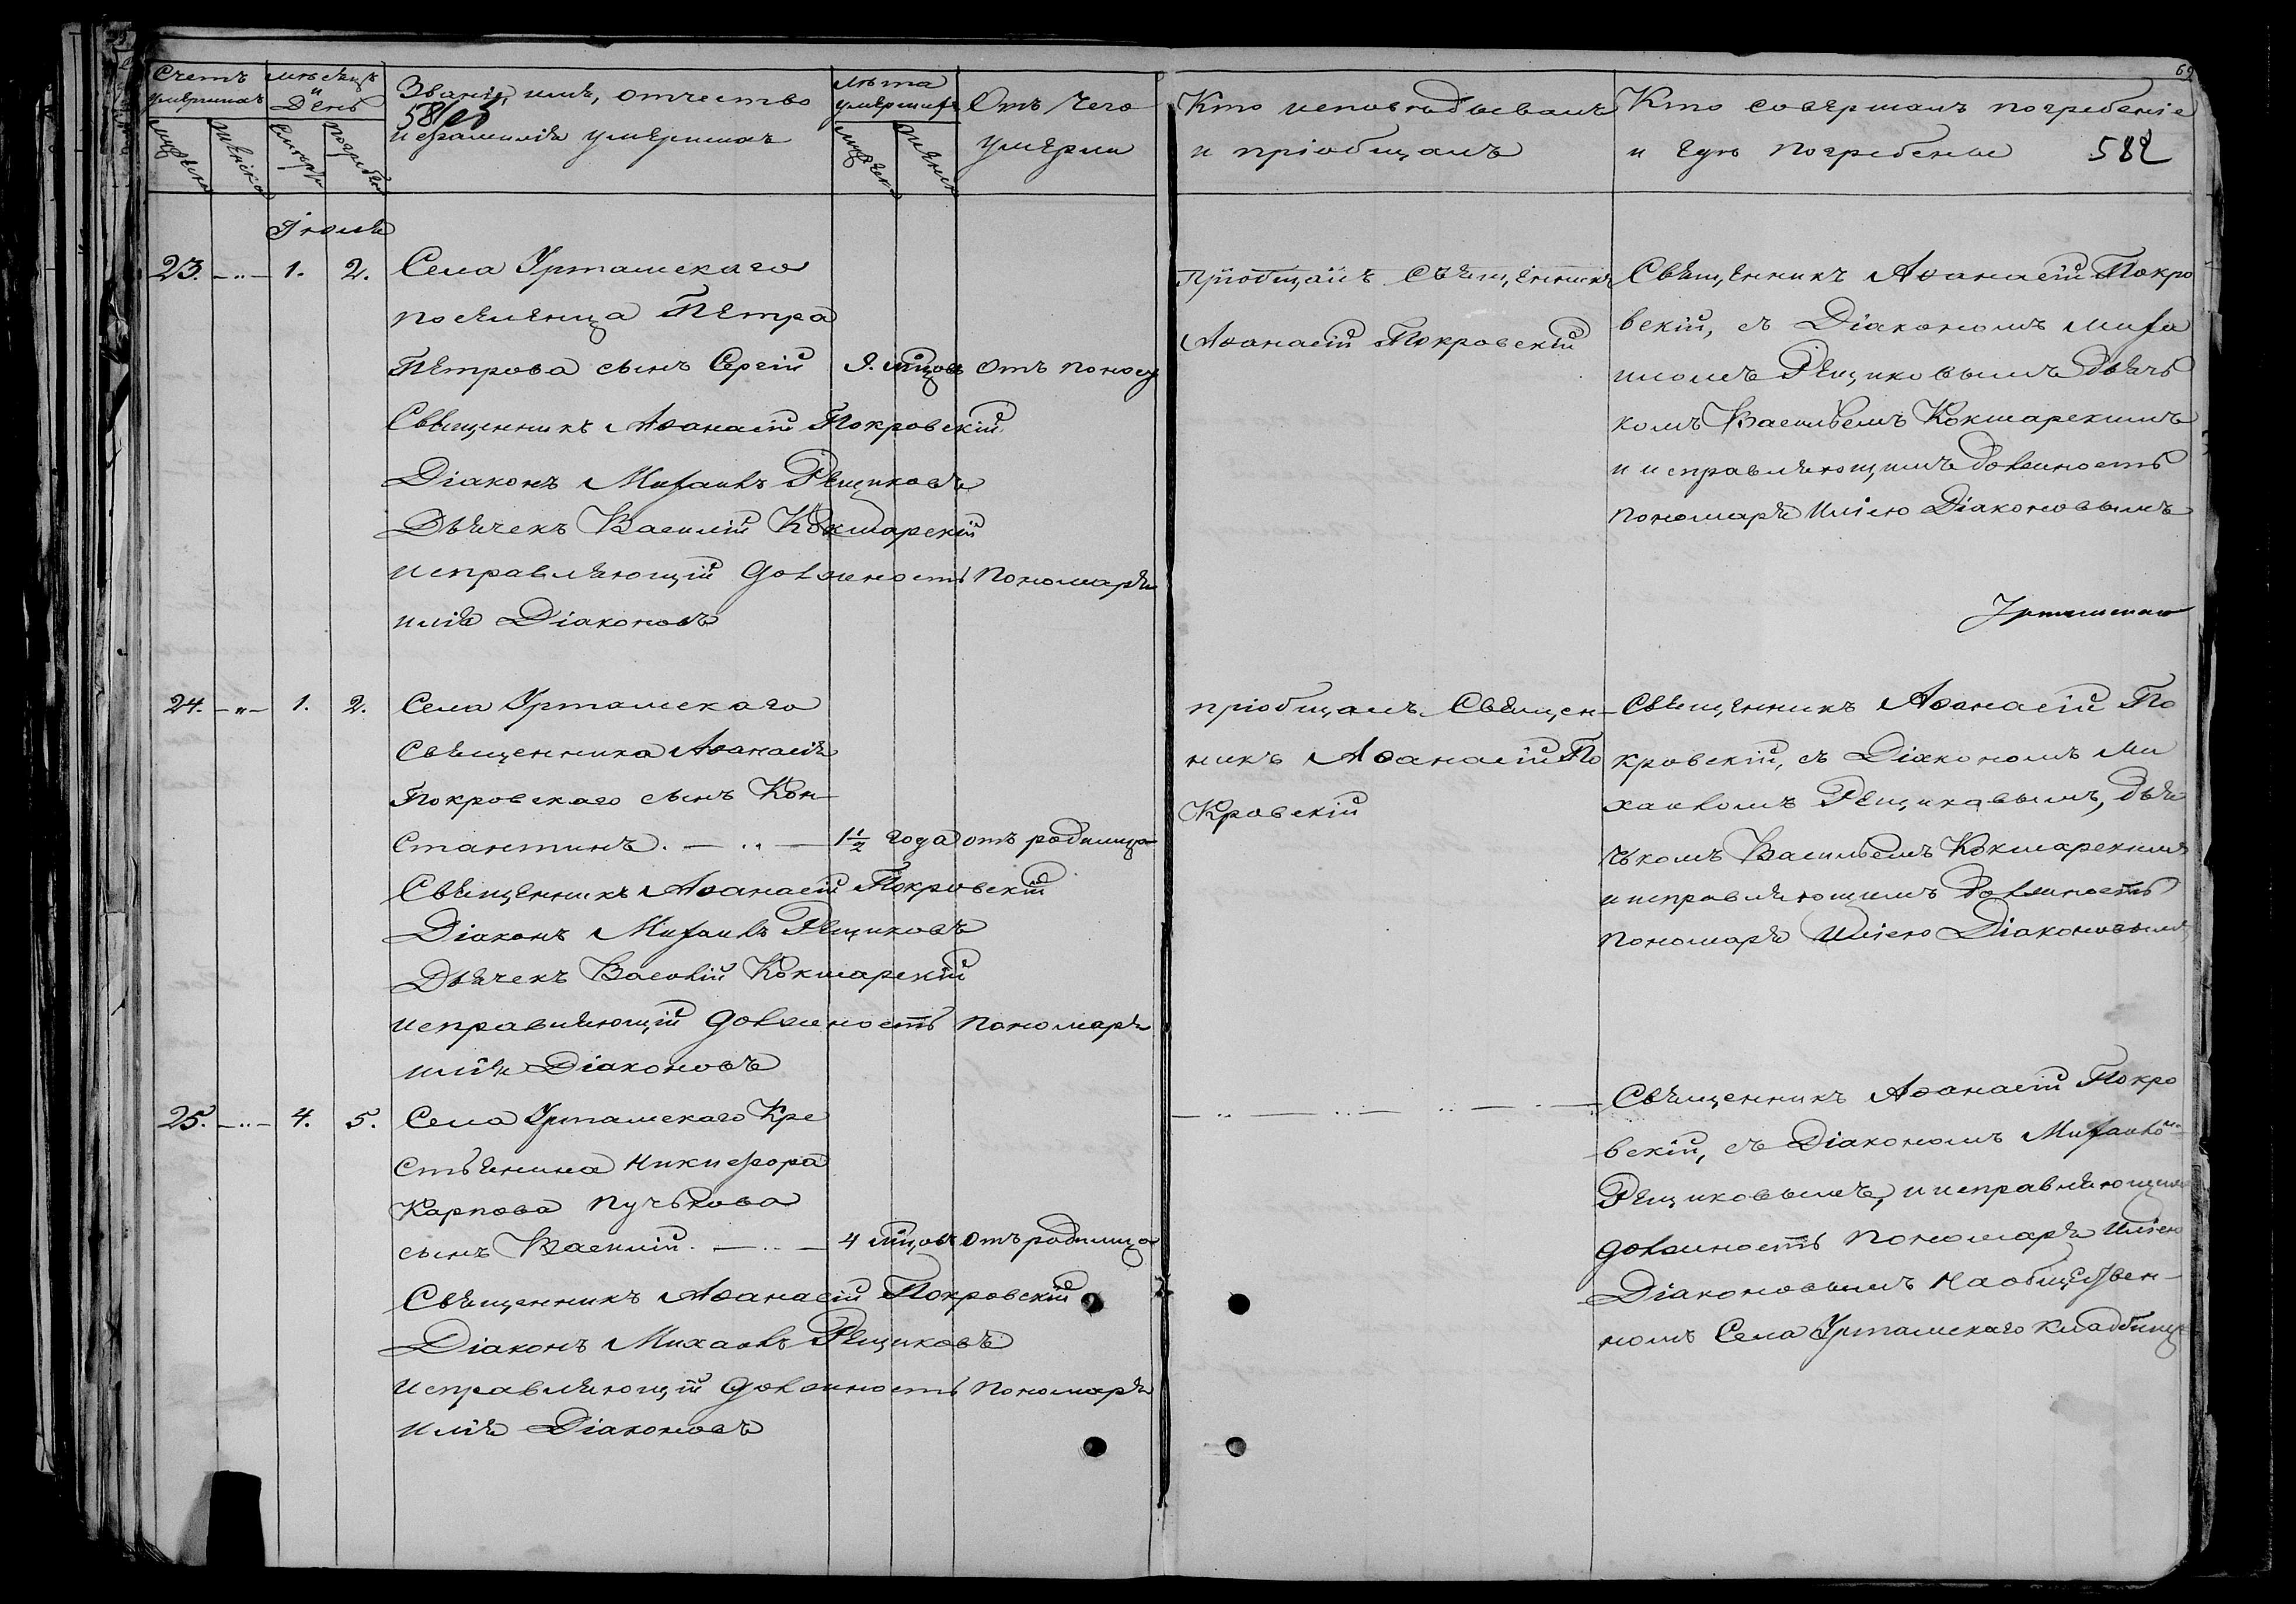 Счетъ умершихъ
мѣсяцъ и День
Званіе, имя, отчество
и фамилія умершихъ
лѣта умершихъ
Отъ чего
умерли
Кто исповѣдывалъ
и пріобщалъ
Кто совершалъ погребеніе
и гдѣ погребены
582
69
Іюля
23. 1. 2. Села Урташскаго
поселенца Петра
Петрова сынъ Сергій 9. мѣцовъ отъ поносу
Священникъ Аѳанасій Покровскій
Діаконъ Михаилъ Рещиковъ
Дьячекъ Василій Кокшарскій
исправляющій должность пономаря
Илія Діаконовъ
Пріобщалъ Священникъ
Аѳанасій Покровскій
Священникъ Аѳанасій Покро
вскій, съ Діакономъ Миха
иломъ Рещиковымъ дьяч
комъ Васильемъ Кокшарскимъ
и исправляющимъ должность
пономаря Иліею Діаконовымъ
24. 1. 2. Села Урташскаго
Священника Аѳанасія
Покровскаго сынъ Кон-
стантинъ. 1½ года отъ родимца
Священникъ Аѳанасій Покровскій
Діаконъ Михаилъ Рещиковъ
Дьячекъ Василій Кокшарскій
исправляющій должность пономаря
Илія Діаконовъ
пріобщалъ Священ-
никъ Аѳанасій По
кровскій
Священникъ Аѳанасій По
кровскій, съ Діакономъ Ми
хаиломъ Рещиковымъ, дья
чькомъ Васильемъ Кокшарскимъ
и исправляющимъ должность
пономаря Иліею Діаконовымъ
25. 4. 5. Села Урташскаго Кре
стьянина Никифора
Карпова Пучькова
сынъ Василій. 4 мѣцовъ отъ родимца
Священникъ Аѳанасій Покровскій
Діаконъ Михаилъ Рещиковъ
Исправляющій должность пономаря
Илія Діаконовъ
Священникъ Аѳанасій Покро
вскій, съ Діакономъ Михаиломъ
Рещиковымъ, и исправляющимъ
должность пономаря Иліею
Діаконовымъ на обществен-
номъ Села Урташскаго кладбище